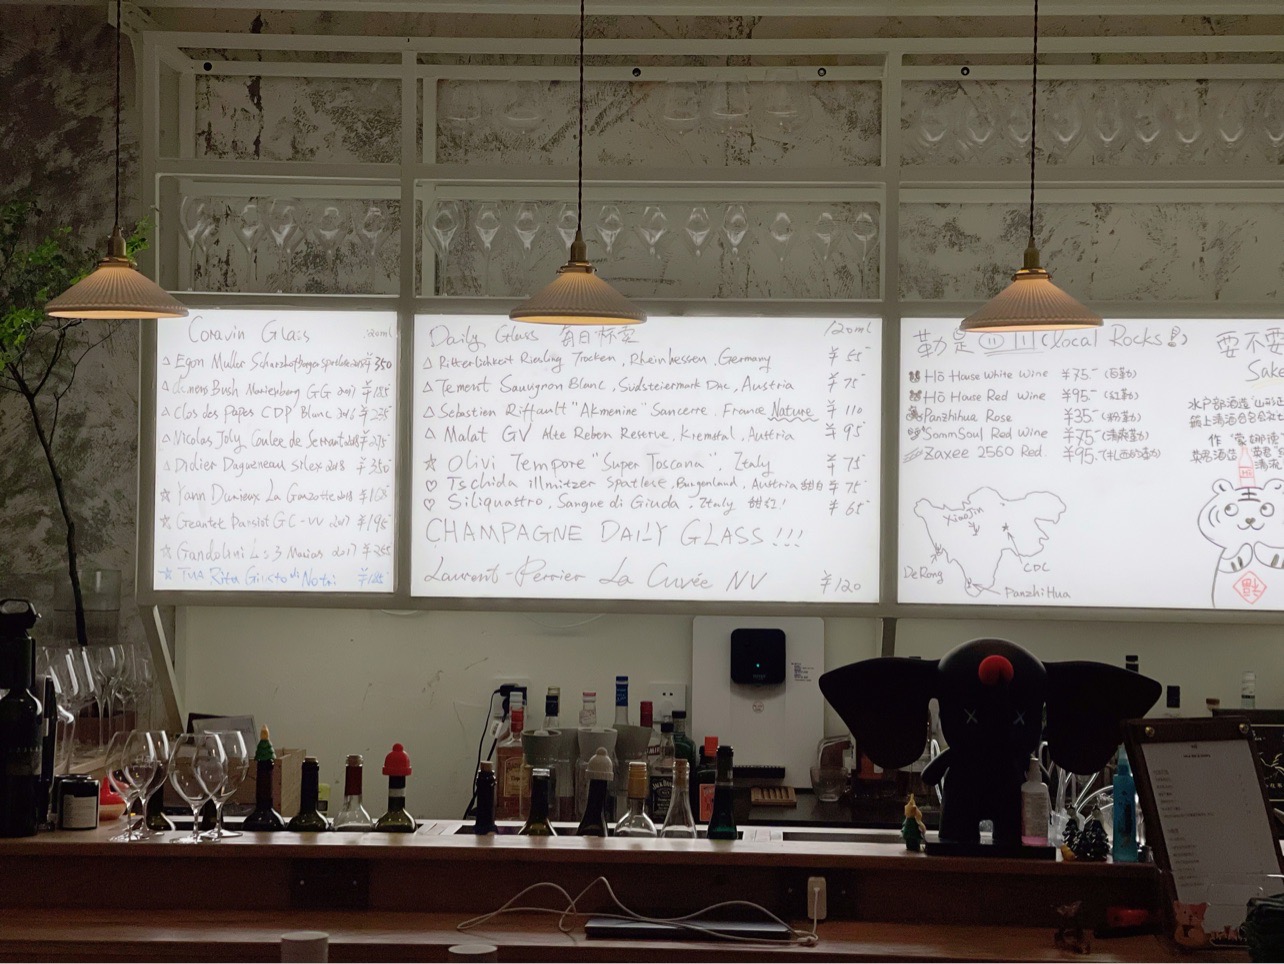 Coravin Glass 120ml
△ Egon Muller Scharzhofberger Spatlese ¥350
△ Clemens Bush Marienburg GG 2017 ¥185
△ Clos des Papes CDP Blanc ¥225
△ Nicolas Joly Coulee de Serrant ¥275
△ Didier Dagueneau silex 2018 ¥350
☆ Yann Durieux La Gonzotte 2018 ¥168
☆ GC-VV 2017 ¥195
☆ Gandolini 3 Marias 2017 ¥265
☆ Tua Rita Giusto di Notri ¥185
Daily Glass 每日杯卖 120ml
△ Ritterlichkeit Riesling Trocken, Rheinhessen, Germany ¥65
△ Tement Sauvignon Blanc, Sudsteiermark Dac, Austria ¥75
△ Sebastien Riffault "Akmenine" Sancerre, France Nature ¥110
△ Malat GV Alte Reben Reserve, Kremstal, Austria ¥95
☆ Olivi Tempore "Super Toscana", Italy ¥75
♡ Tschida illmitzer Spatlese, Burgenland, Austria 甜白 ¥75
♡ Siliquastro, Sangue di Giuda, Italy 甜红! ¥65
CHAMPAGNE DAILY GLASS !!!
Laurent-Perrier La Cuvée NV ¥120
勒是四川 (local Rocks!)
Hō House White Wine ¥75
Hō House Red Wine ¥95 (红勒)
Panzhihua Rose ¥35 (粉勒)
SommSoul Red Wine ¥75
Zaxee 2560 Red ¥95 (扎西的勒)
XiaoJin
DeRong
CDC
PanzhiHua
要不要
Sake
福